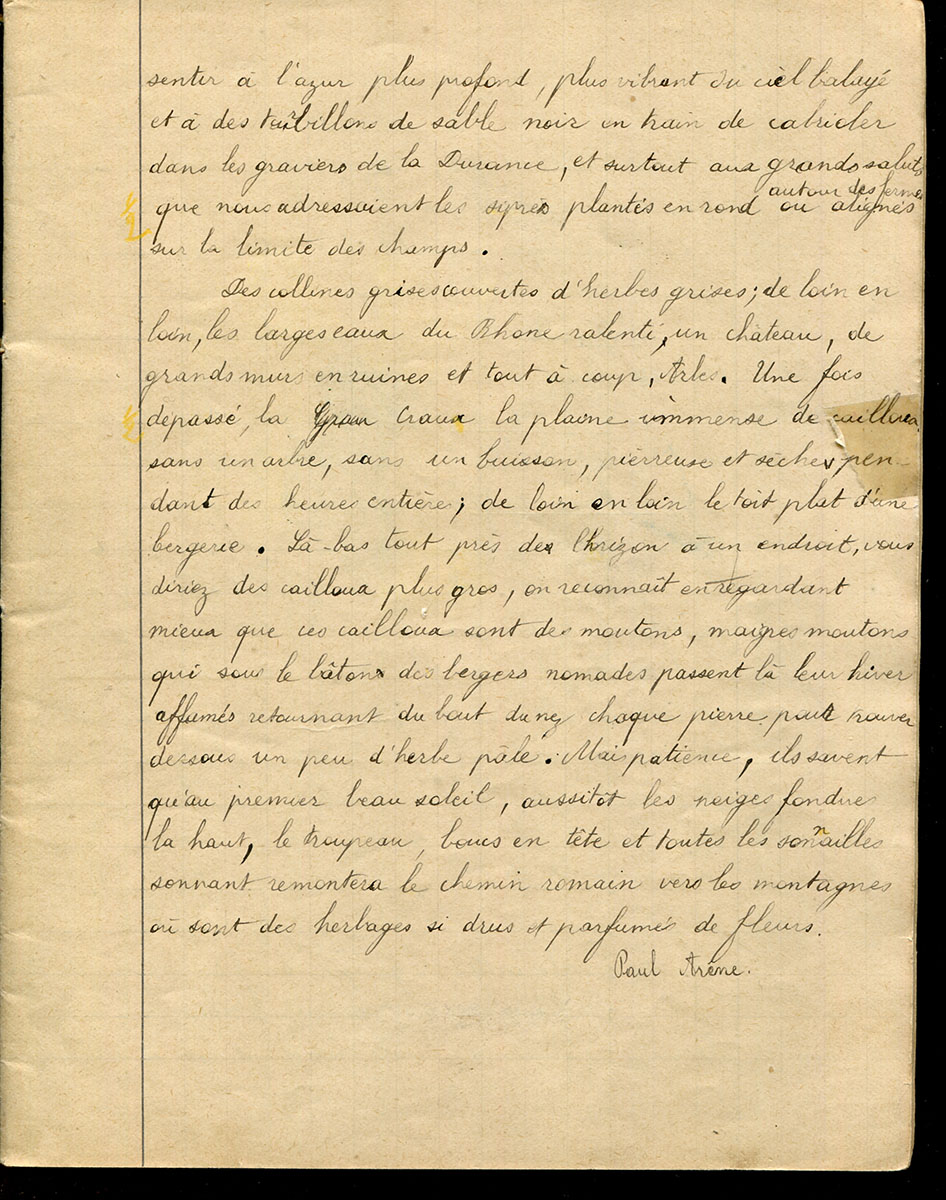 sentir à l'azur plus profond, plus vibrant du ciel balayé
et à des tourbillons de sable noir en train de cabrioler
dans les graviers de la Durance, et surtout aux grands saluts
autour des fermes
que nous adressaient les siprès plantés en rond ou alignés
sur la limite des champs.
Des collines grises couvertes d'herbes grises; de loin en
loin, les larges eaux du Rhone ralenti, un château, de
grands murs en ruines et tout à coup, Arles. Une fois
dépassé, la Craux la plaine immense de cailloux
sans un arbre, sans un buisson, pierreuse et sèche, pen-
dant des heures entière; de loin en loin le toit plat d'une
bergerie. Là-bas tout près de l'hrizon à un endroit, vous
diriez des cailloux plus gros, on reconnaît en regardant
mieux que ces cailloux sont des moutons, maigres moutons
qui sous le bâton des bergers nomades passent là leur hiver
affamés retournant du bout du nez chaque pierre pour trouver
dessous un peu d'herbe pâle. Mais patience, ils savent
qu'au premier beau soleil, aussitôt les neiges fondues
la haut, le troupeau, boucs en tête et toutes les sonnailles
sonnant remontera le chemin romain vers les montagnes
où sont des herbages si drus et parfumés de fleurs.
Paul Arène.